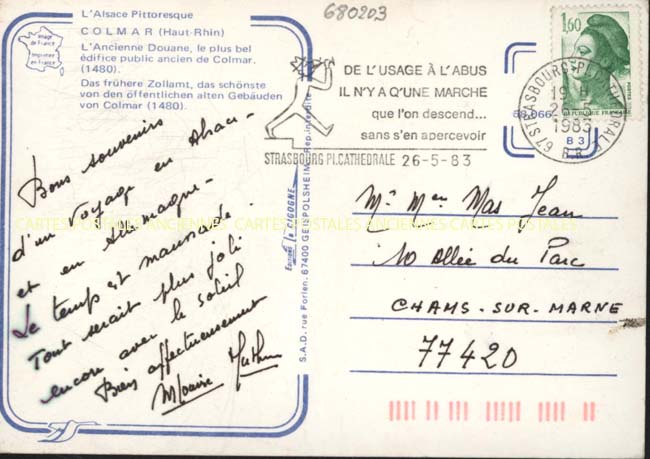 680203
L'Alsace Pittoresque
COLMAR (Haut-Rhin)
L'Ancienne Douane, le plus bel
édifice public ancien de Colmar.
(1480).
Das frühere Zollamt, das schönste
von den öffentlichen alten Gebäuden
von Colmar (1480).
Image
de France
Imprimée
en France
DE L'USAGE À L'ABUS
IL N'Y A Q'UNE MARCHE
que l'on descend...
sans s'en apercevoir
STRASBOURG PL.CATHEDRALE 26-5-83
1,60
REPUBLIQUE FRANÇAISE
67 STRASBOURG-PL CATHEDRALE
19 H
26-5
1983
B 3
B.R.
68.066
Bons souvenirs
d'un voyage en Alsace-
et en Allemagne-
Le temps est maussade.
Tout serait plus joli
encore avec le soleil
Bien affectueusement
Editions la CIGOGNE
S.A.D. rue Forlen. 67400 GEISPOLSHEIM Rep.interdite
Mr Mme Mas Jean
10 Allée du Parc
CHAMS-SUR-MARNE
77420
CARTES POSTALES ANCIENNES CARTES POSTALES ANCIENNES CARTES POSTALES